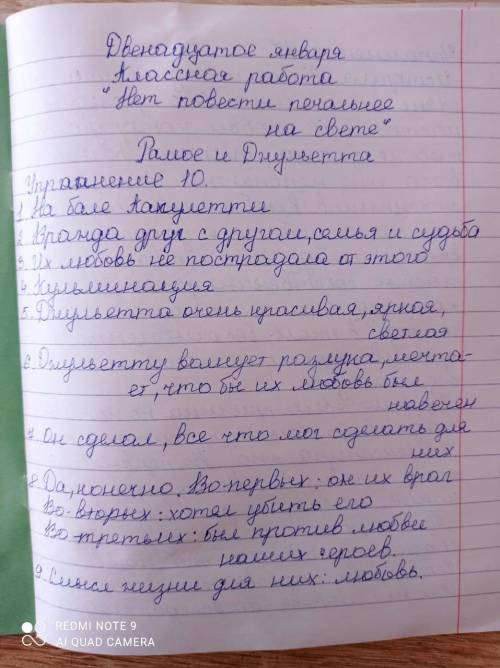 Двенадцатое января
Классная работа
"Нет повести печальнее
на свете"
Рамое и Джульетта
Упражнение 10.
1. На бале Капулетти
2. Вранда друг с другом, семья и судьба
3. Их любовь не пострадала от этого
4. Кульминация
5. Джульетта очень красивая, яркая,
светлая
6. Джульетту волнует разлука, мечта-
ет, что бы их любовь был
навечен
7. Он сделал, все что мог сделать для
них
8. Да, конечно. Во-первых: он их враг
Во-вторых: хотел убить его
Во-третьих: был против любвее
наших героев.
9. Смысл жизни для них: любовь.
REDMI NOTE 9
AI QUAD CAMERA